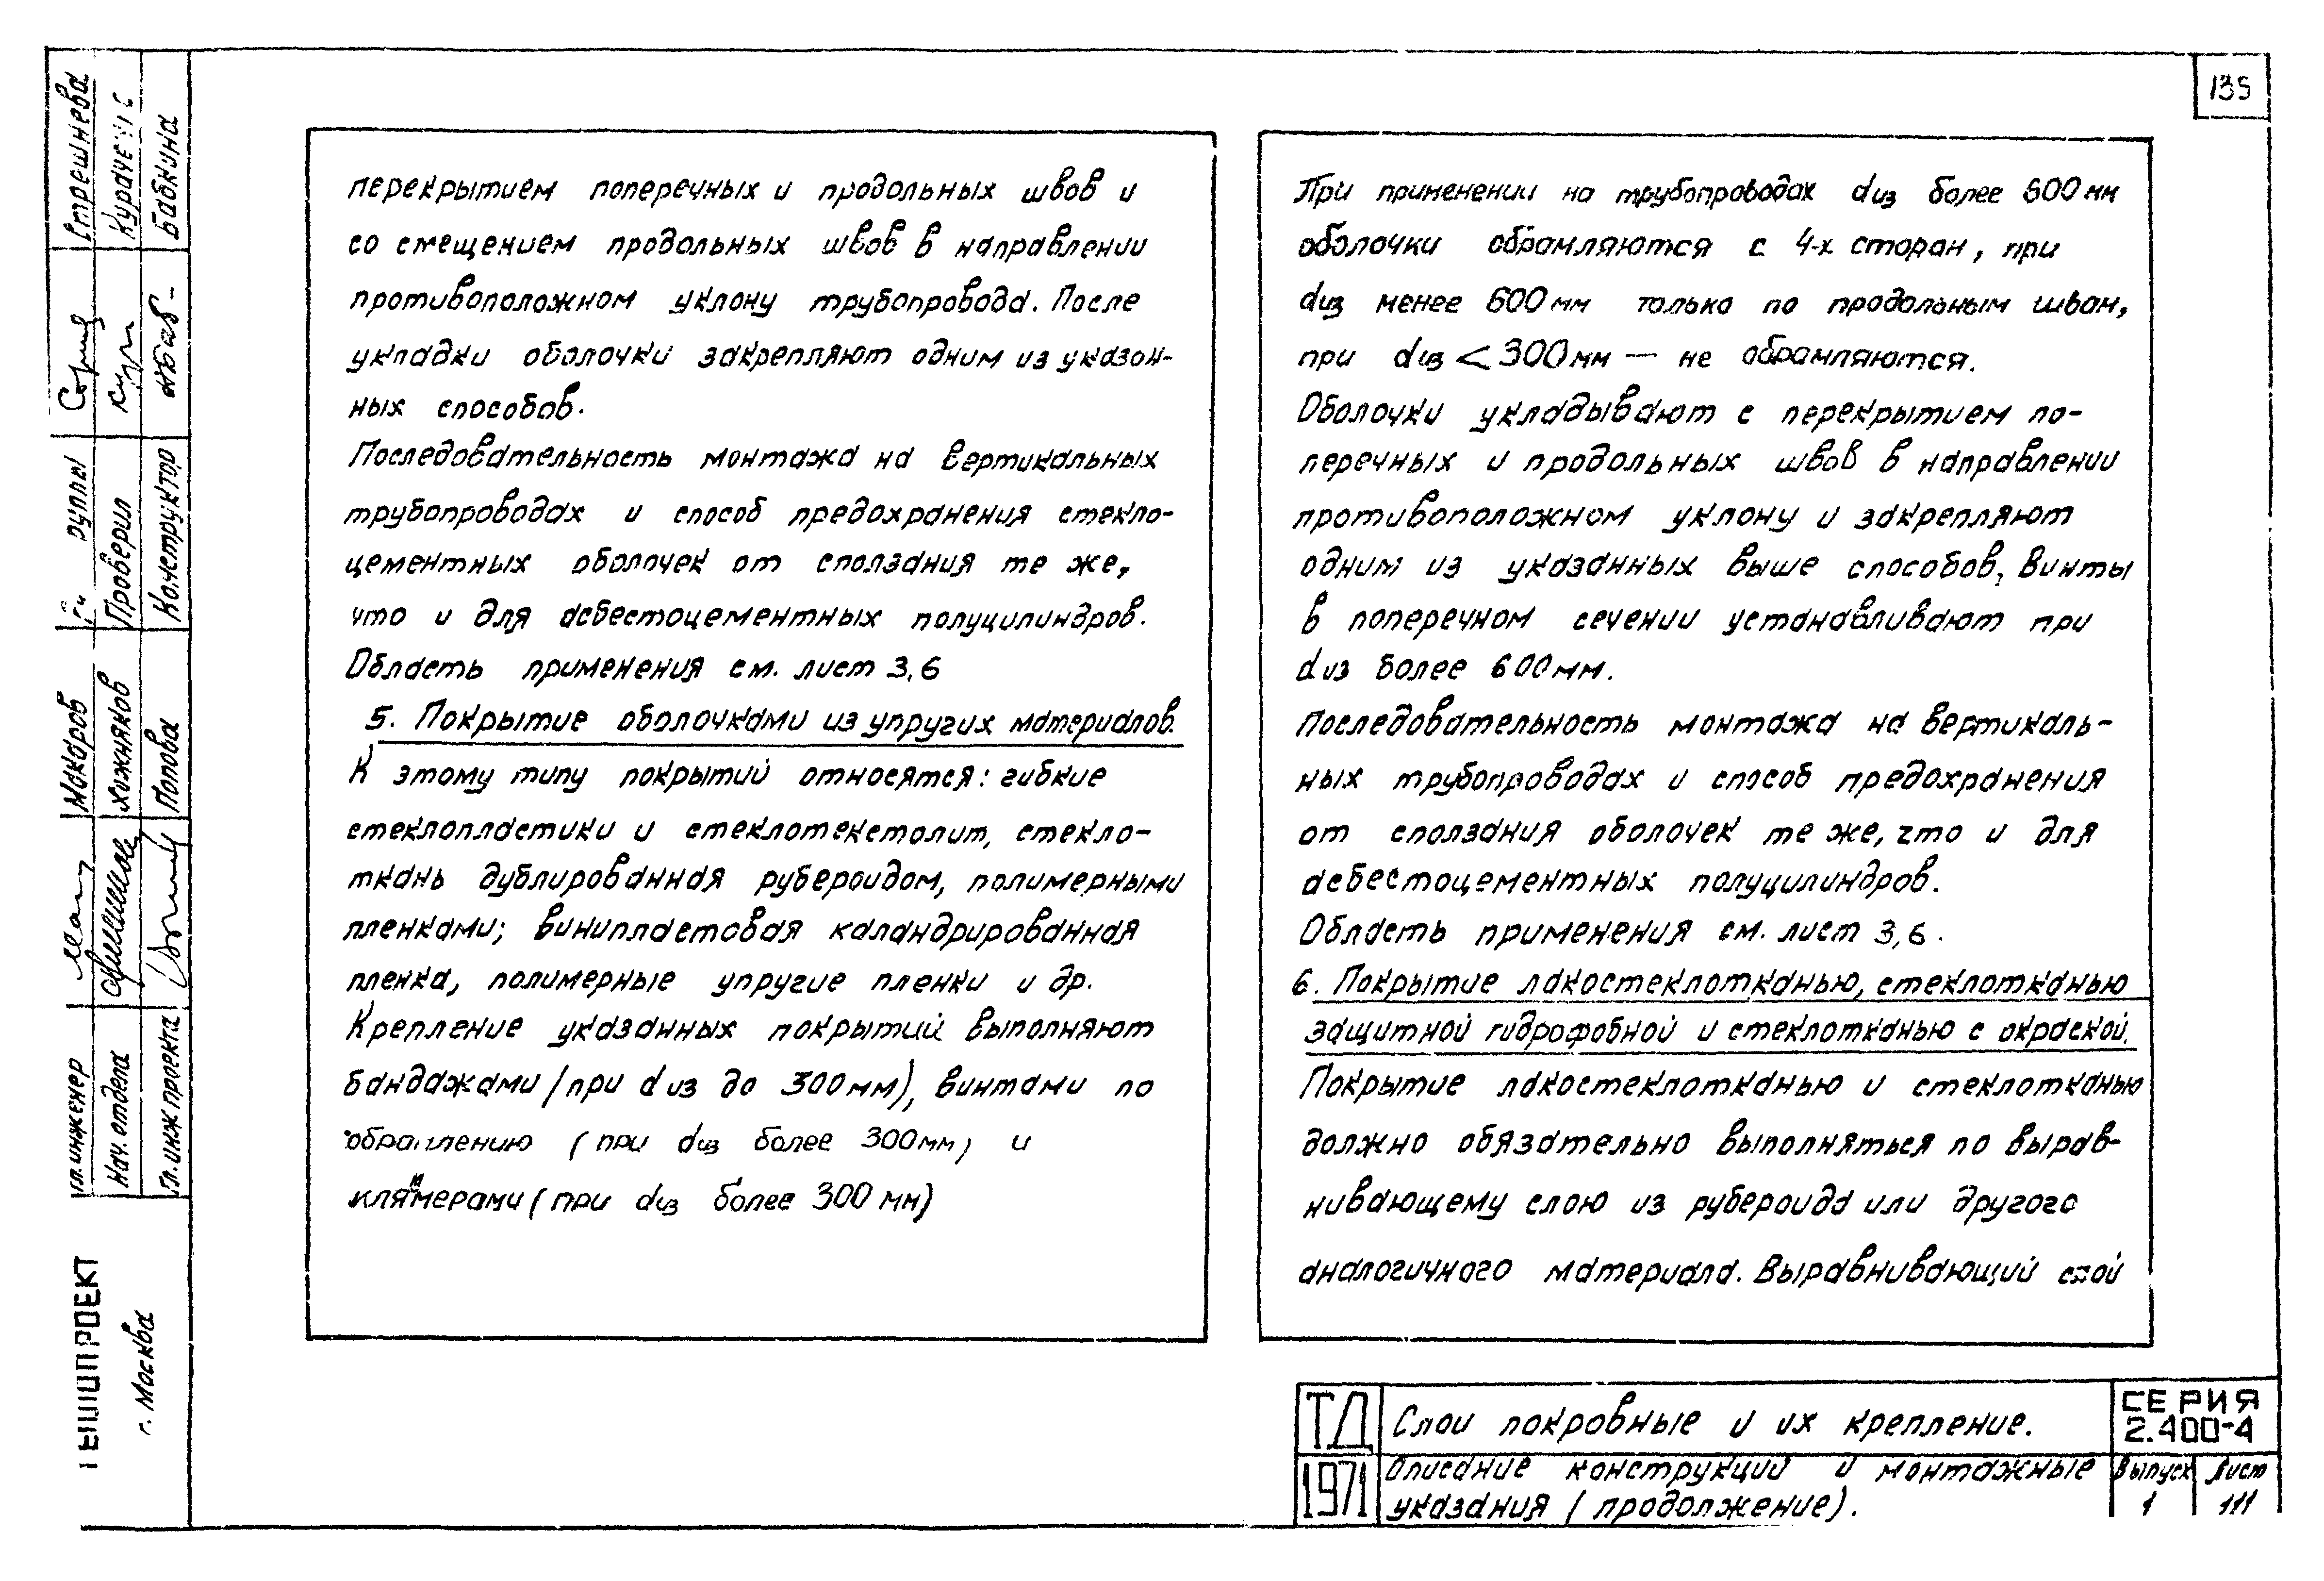 135
перекрытием поперечных и продольных швов и
со смещением продольных швов в направлении
противоположном уклону трубопровода. После
укладки оболочки закрепляют одним из указан-
ных способов.
Последовательность монтажа на вертикальных
трубопроводах и способ предохранения стекло-
цементных оболочек от сползания те же,
что и для асбестоцементных полуцилиндров.
Область применения см. лист 3,6
5. Покрытие оболочками из упругих материалов.
К этому типу покрытий относятся: гибкие
стеклопластики и стеклотекстолит, стекло-
ткань дублированная рубероидом, полимерными
пленками; винипластовая каландрированная
пленка, полимерные упругие пленки и др.
Крепление указанных покрытий выполняют
бандажами /при dиз до 300мм), винтами по
обрамлению (при dиз более 300мм) и
кляммерами (при dиз более 300 мм)
При применении на трубопроводах dиз более 600мм
оболочки обрамляются с 4-х сторан, при
dиз менее 600мм только по продольным швам,
при dиз < 300мм — не обрамляются.
Оболочки укладывают с перекрытием по-
перечных и продольных швов в направлении
противоположном уклону и закрепляют
одним из указанных выше способов, Винты
в поперечном сечении устанавливают при
dиз более 600мм.
Последовательность монтажа на вертикаль-
ных трубопроводах и способ предохранения
от сползания оболочек те же, что и для
асбестоцементных полуцилиндров.
Область применения см. лист 3,6.
6. Покрытие лакостеклотканью, стеклотканью
защитной гидрофобной и стеклотканью с окраской.
Покрытие лакостеклотканью и стеклотканью
должно обязательно выполняться по вырав-
нивающему слою из рубероида или другого
аналогичного материала. Выравнивающий слой
ТД
1971
Слои покровные и их крепление.
Описание конструкций и монтажные
указания (продолжение).
СЕРИЯ
2.400-4
Выпуск Лист
1 111
Гл. инженер Макаров
Нач. отдела Хижняков
Гл. инж проекта Попова
Стрешнева
Проверил
Конструктор Бабкина
г. Москва